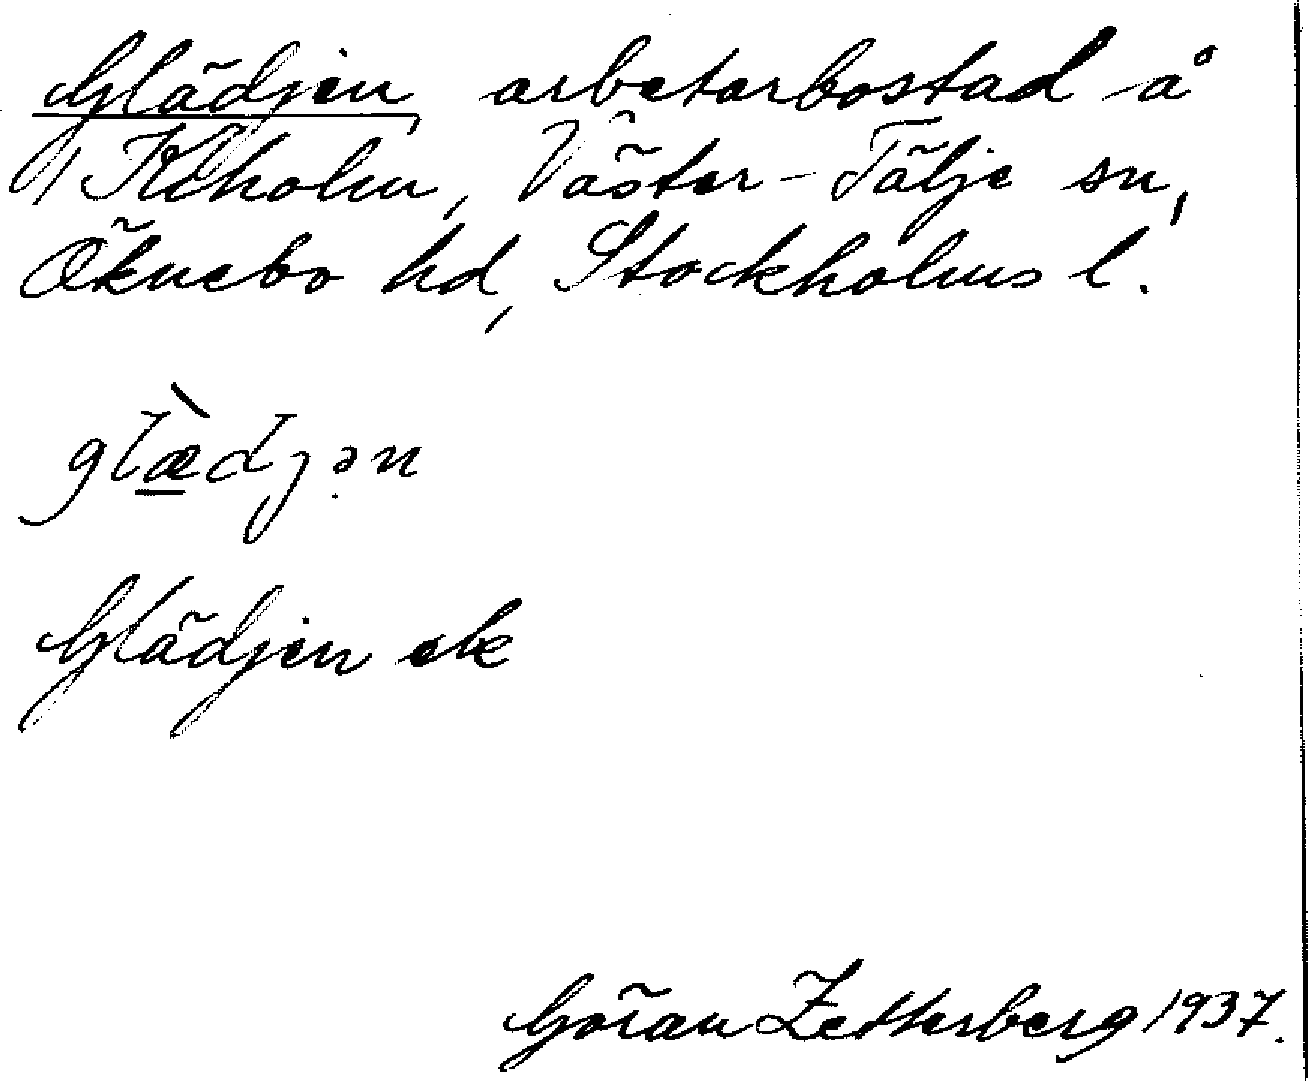 Glädjen, arbetarbostad å
Kiholm, Väster-Tälje sn,
Öknebo hd, Stockholms l.
glæ̀djən
Glädjen ek
Göran Zetterberg 1937.